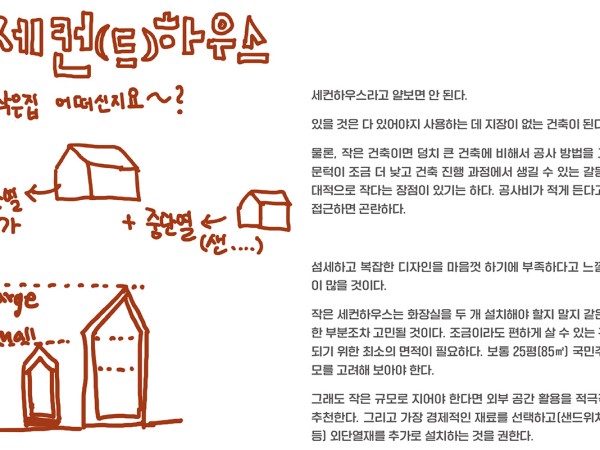 세컨(드)하우스
작은집 어떠신지요~?
+ 중단열
(샌....)
세컨하우스라고 얕보면 안 된다.
있을 것은 다 있어야지 사용하는 데 지장이 없는 건축이 된다
물론, 작은 건축이면 덩치 큰 건축에 비해서 공사 방법을
문턱이 조금 더 낮고 건축 진행 과정에서 생길 수 있는
대적으로 작다는 장점이 있기는 하다. 공사비가 적게 든다고
접근하면 곤란하다.
섬세하고 복잡한 디자인을 마음껏 하기에 부족하다고
이 많을 것이다.
작은 세컨하우스는 화장실을 두 개 설치해야 할지 말지 같은
한 부분조차 고민될 것이다. 조금이라도 편하게 살 수 있는
되기 위한 최소의 면적이 필요하다. 보통 25평(85㎡)
모를 고려해 보아야 한다.
그래도 작은 규모로 지어야 한다면 외부 공간 활용을
추천한다. 그리고 가장 경제적인 재료를 선택하고(샌드위치
등) 외단열재를 추가로 설치하는 것을 권한다.